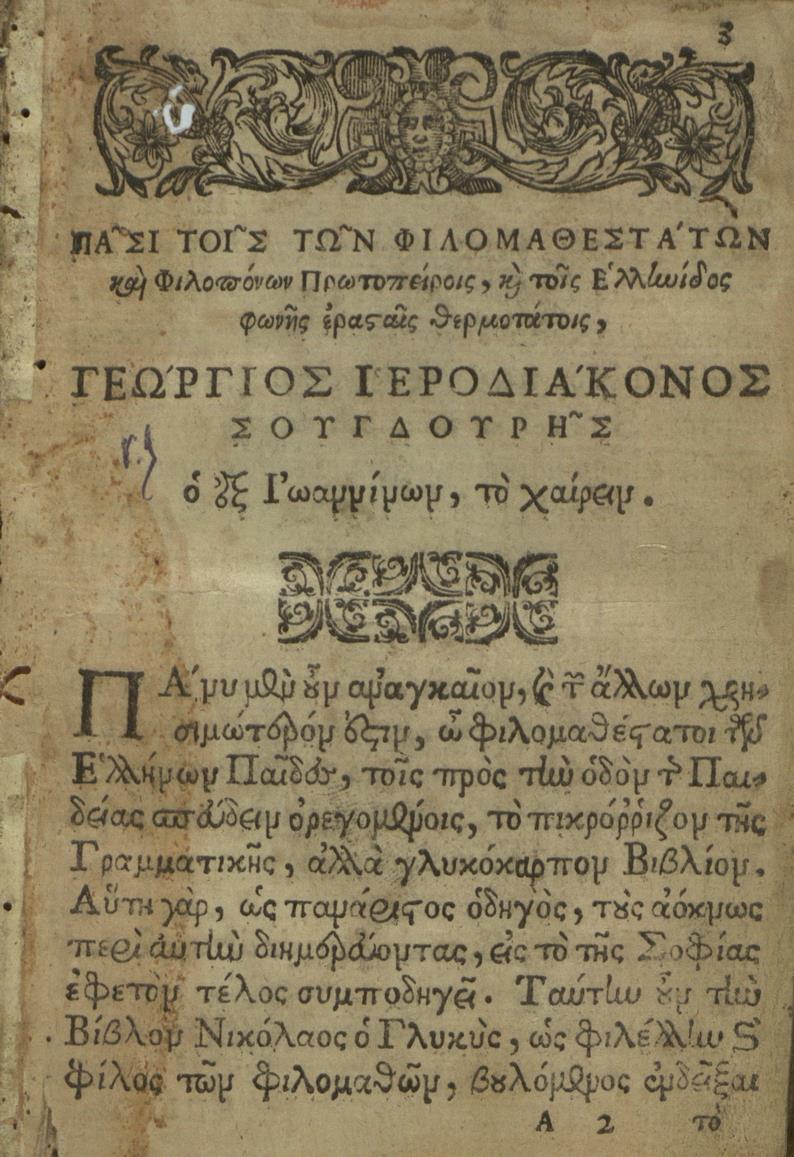 3
ΠΑ῀ΣΙ ΤΟΙ῀Σ ΤΩ῀Ν ΦΙΛΟΜΑΘΕΣΤΑ´ΤΩΝ
καὶ Φιλοπόνων Πρωτοπείροις, κỳ τοῖς Ἑλληνίδος
φωνῆς ἐραςαῖς θερμοτάτοις,
ΓΕΩ´ΡΓΙΟΣ ἹΕΡΟΔΙΑ´ΚΟΝΟΣ
ΣΟΥΓΔΟΥΡΗ῀Σ
ὁ ἐξ Ἰωαννίνων, τὸ χαίρειν.
ΠΑ´νυ μὲν ȣ̓ν ἀναγκαῖον, ϗ τῶν ἄλλων χρη-
σιμώτερόν ἐςιν, ὦ φιλομαθέςατοι τῶν
Ἑλλήνων Παῖδες, τοῖς πρὸς τὴν ὁδὸν τῆς Παι-
δείας σπεύδειν ὀρεγομένοις, τὸ πικρόῤῥιζον τῆς
Γραμματικῆς, ἀλλὰ γλυκόκαρπον Βιβλίον.
Αὕτη γὰρ, ὡς πανάριςος ὁδηγὸς, τȣ̀ς ἀόκνως
περὶ αὐτὴν διημερεύοντας, εἰς τὸ τῆς Σοφίας
ἐφετὸν τέλος συμποδηγεῖ. Ταύτην ȣ̓ν τὴν
Βίβλον Νικόλαος ὁ Γλυκὺς, ὡς φιλέλλην ϗ
φίλος τῶν φιλομαθῶν, βȣλόμενος ἐνδεῖξαι
Α 2 τὸ